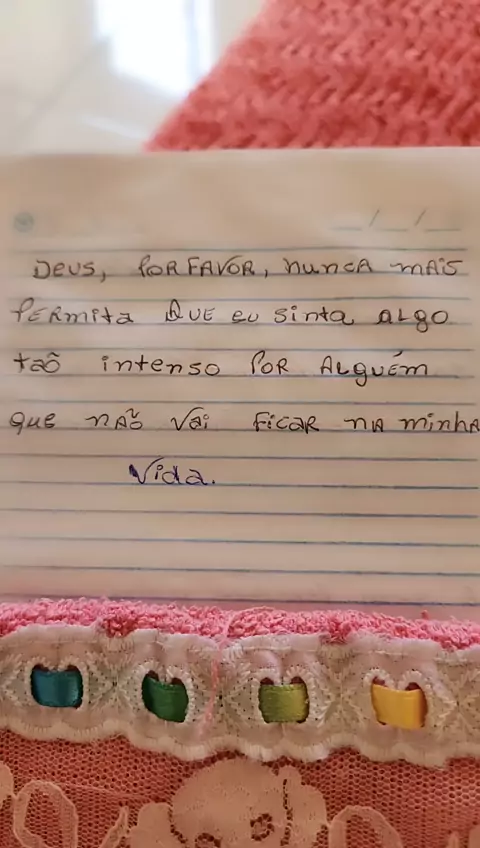 Deus, por favor, nunca mais
permita que eu sinta algo
taõ intenso por alguém
que naõ vai ficar na minha
vida.